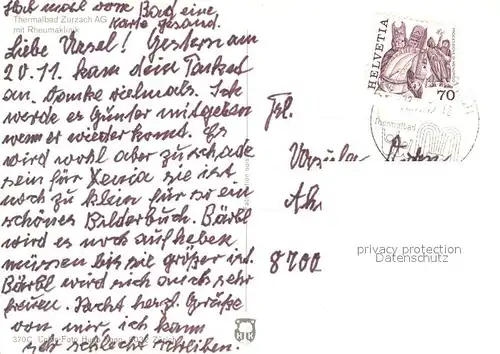 Hab wohl vom Bad eine
Karte gesand.
Thermalbad Zurzach AG
mit Rheumaklinik
Liebe Ursel! Gestern am
20.11. kam dein Packet
an. Danke vielmals. Ich
werde es Günter mitgeben
wenn er wiederkomt. Es
wird wohl aber zu schade
sein für Xenia sie ist
noch zu klein für so ein
schönes Bilderbuch. Bärbl
wird es noch aufheben
müssen bis sie größer ist.
Bärbl wird sich auch sehr
freuen. Recht herzl. Grüße
von mir, ich kann
sehr schlecht schreiben.
HELVETIA
70
Thermalbad
Frl.
Ursula
8700
privacy protection
Datenschutz